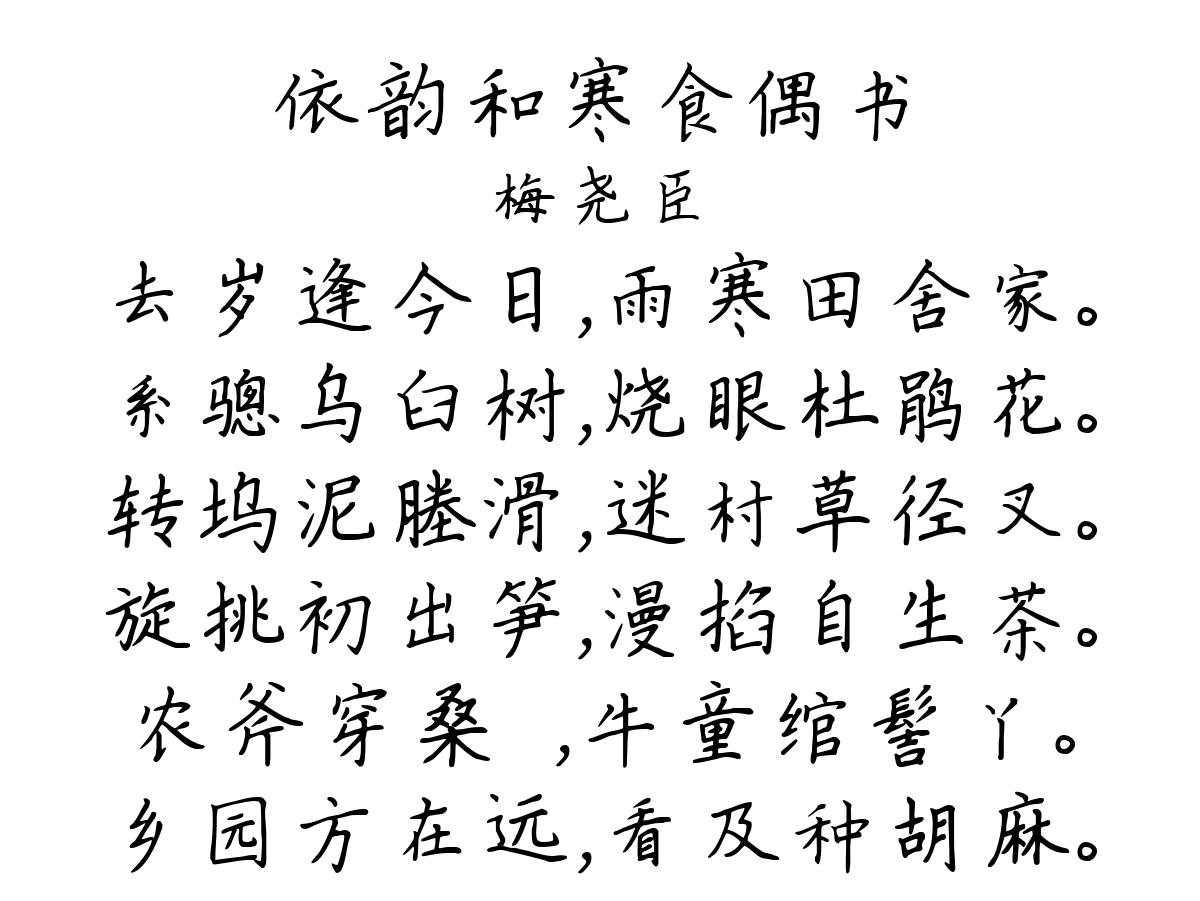 依韵和寒食偶书
梅尧臣
去岁逢今日,雨寒田舍家。
系骢乌臼树,烧眼杜鹃花。
转坞泥塍滑,迷村草径叉。
旋挑初出笋,漫掐自生茶。
农斧穿桑 ,牛童绾髻丫。
乡园方在远,看及种胡麻。